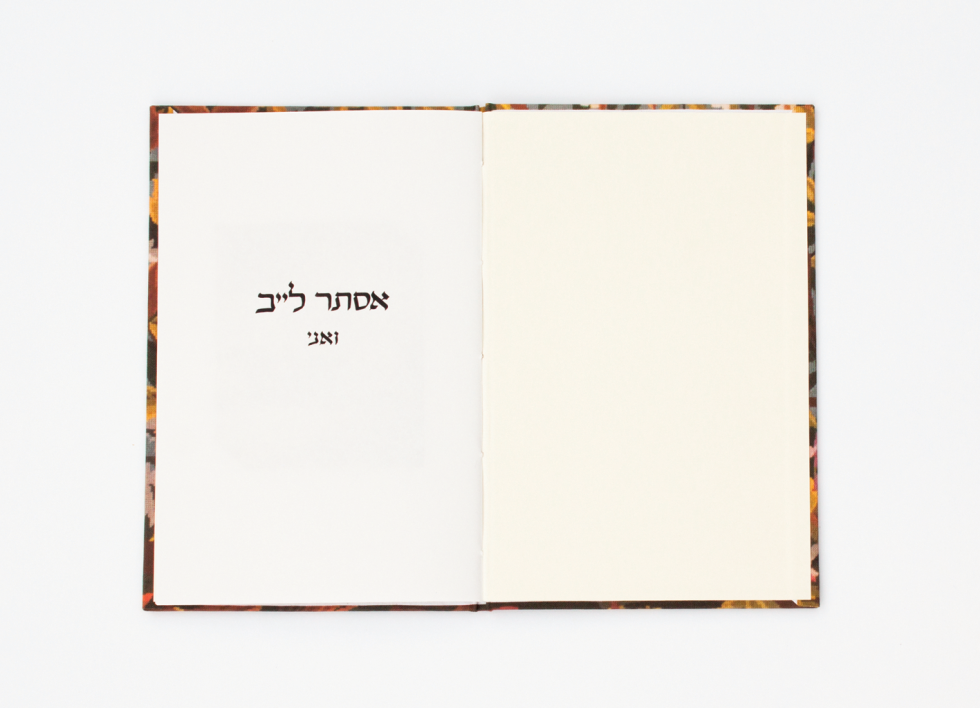 אסתר לייב
ואני